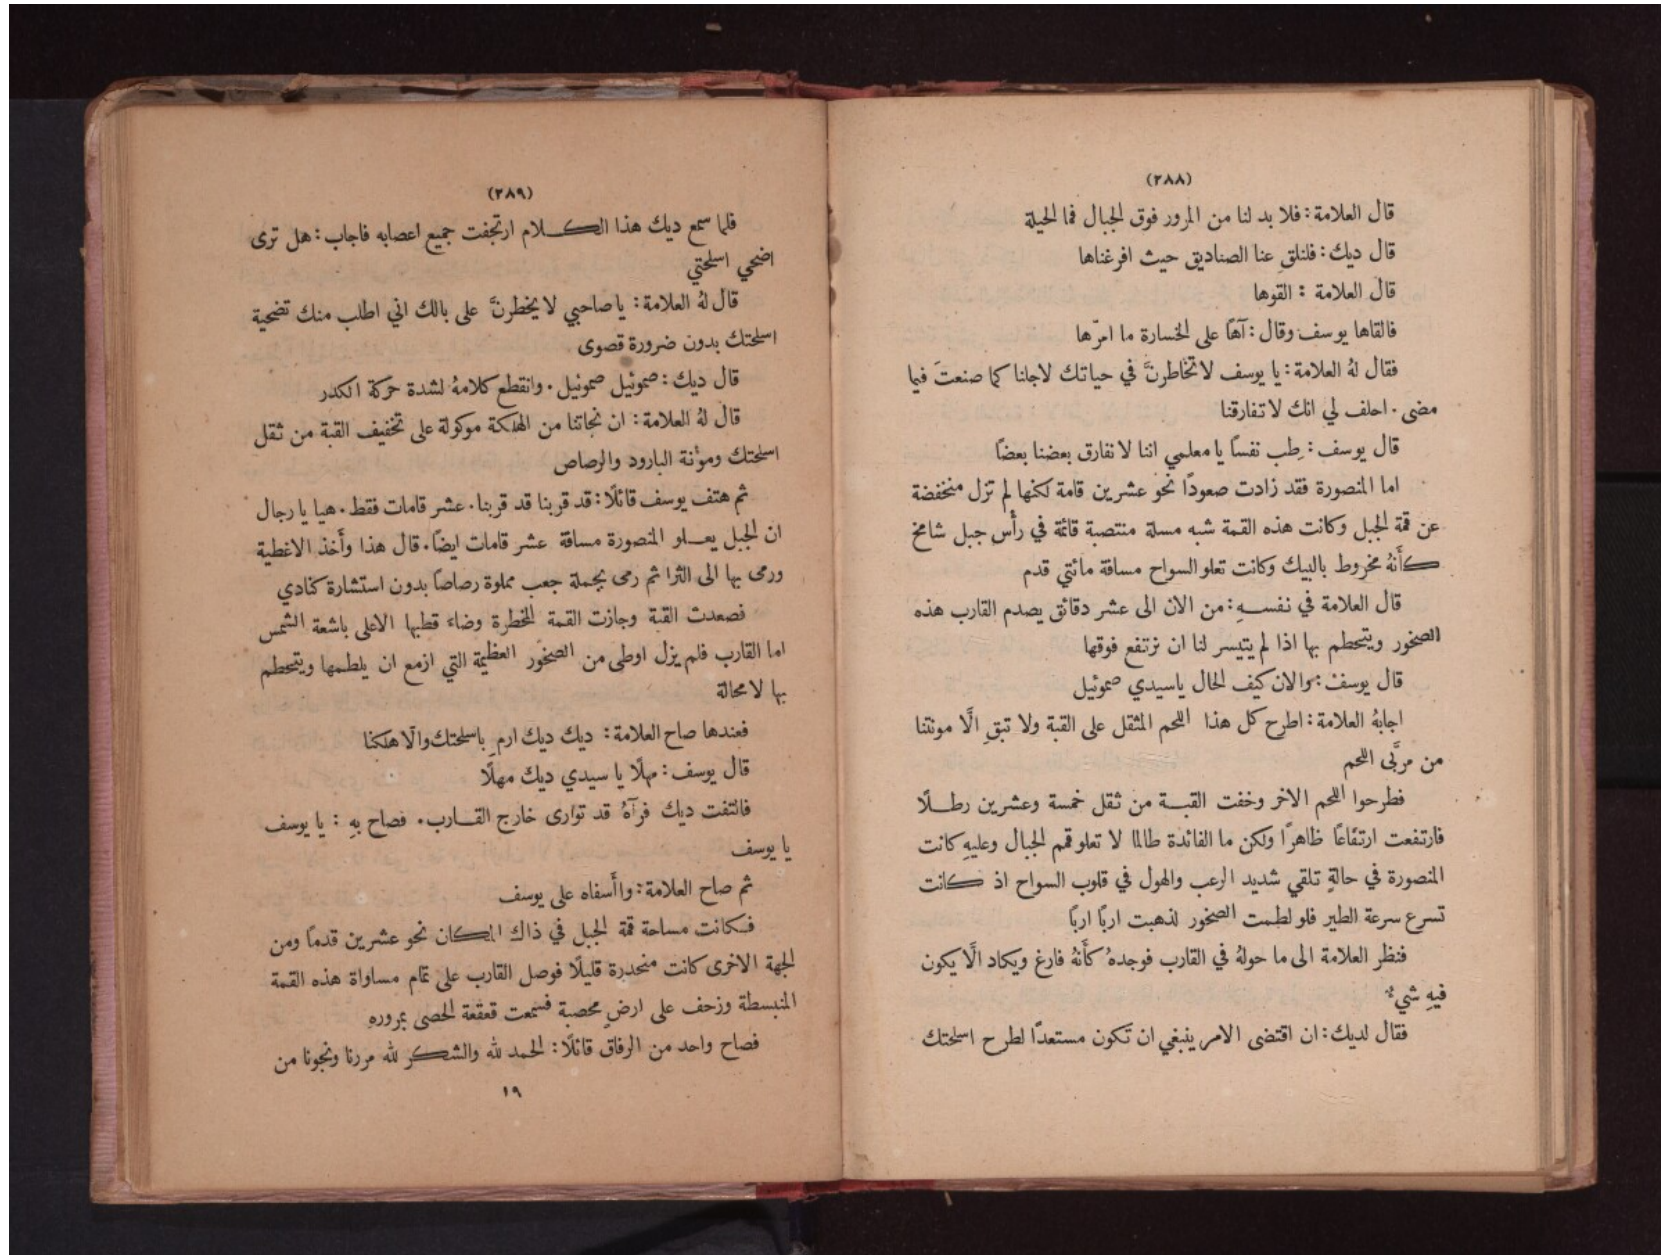 (٢٨٨)
قال العلامة: فلا بد لنا من المرور فوق الجبال فما الحيلة
قال ديك: فلنلقِ عنا الصناديق حيث افرغناها
قال العلامة: القوها
فالقاها يوسف وقال: آهًا على الخسارة ما امرّها
فقال لهُ العلامة: يا يوسف لا تخاطرنَّ في حياتك لاجلنا كما صنعتَ فيما
مضى. احلف لي انك لا تفارقنا
قال يوسف: طِب نفسًا يا معلمي اننا لا نفارق بعضنا بعضًا
اما المنصورة فقد زادت صعودًا نحو عشرين قامة لكنها لم تزل منخفضة
عن قمة الجبل وكانت هذه القمة شبه مسلة منتصبة قائمة في رأس جبل شامخ
كأَنهُ مخروط بالبيك وكانت تعلو السواح مسافة مائتي قدم
قال العلامة في نفسهِ: من الان الى عشر دقائق يصدم القارب هذه
الصخور ويتحطم بها اذا لم يتيسر لنا ان نرتفع فوقها
قال يوسف: والان كيف الحال ياسيدي صموئيل
اجابهُ العلامة: اطرح كل هذا اللحم المثقل على القبة ولا تبقِ الَّا مونتنا
من مربَّى اللحم
فطرحوا اللحم الاخر وخفت القبة من ثقل خمسة وعشرين رطلًا
فارتفعت ارتفاعًا ظاهرًا ولكن ما الفائدة طالما لا تعلو قمم الجبال وعليهِ كانت
المنصورة في حالةٍ تلقي شديد الرعب والهول في قلوب السواح اذ كانت
تسرع سرعة الطير فلو لطمت الصخور لذهبت اربًا اربًا
فنظر العلامة الى ما حولهُ في القارب فوجدهُ كأَنهُ فارغ ويكاد الَّا يكون
فيهِ شيءٌ
فقال لديك: ان اقتضى الامر ينبغي ان تكون مستعدًا لطرح اسلحتك
(٢٨٩)
فلما سمع ديك هذا الكلام ارتجفت جميع اعصابه فاجاب: هل ترى
اضحي اسلحتي
قال لهُ العلامة: يا صاحبي لا يخطرنَّ على بالك اني اطلب منك تضحية
اسلحتك بدون ضرورة قصوى
قال ديك: صموئيل صموئيل. وانقطع كلامهُ لشدة حركة الكدر
قال لهُ العلامة: ان نجاتنا من الهلكة موكولة على تخفيف القبة من ثقل
اسلحتك ومؤنة البارود والرصاص
ثم هتف يوسف قائلًا: قد قربنا قد قربنا. عشر قامات فقط. هيا يا رجال
ان الجبل يعلو المنصورة مسافة عشر قامات ايضًا. قال هذا وأَخذ الاغطية
ورمى بها الى الثرا ثم رمى بجملة جعب مملوة رصاصًا بدون استشارة كنادي
فصعدت القبة وجازت القمة المخطرة وضاء قطبها الاعلى باشعة الشمس
اما القارب فلم يزل اوطى من الصخور العظيمة التي ازمع ان يلطمها ويتحطم
بها لا محالة
فعندها صاح العلامة: ديك ديك ارمِ باسلحتك والَّا هلكنا
قال يوسف: مهلًا يا سيدي ديك مهلًا
فالتفت ديك فرآهُ قد توارى خارج القارب. فصاح بهِ: يا يوسف
يا يوسف
ثم صاح العلامة: واأَسفاه على يوسف
فكانت مساحة قمة الجبل في ذاك المكان نحو عشرين قدمًا ومن
الجهة الاخرى كانت منحدرة قليلًا فوصل القارب على تمام مساواة هذه القمة
المنبسطة وزحف على ارضٍ محصبة فسمعت قعقعة الحصى بمرورهِ
فصاح واحد من الرفاق قائلًا: الحمد لله والشكر لله مررنا ونجونا من
١٩